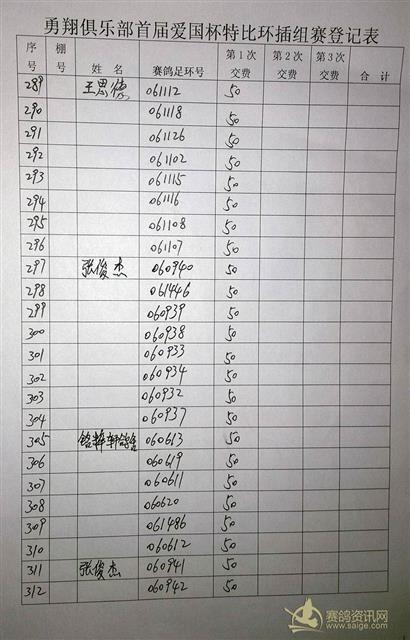 勇翔俱乐部首届爱国杯特比环插组赛登记表
序号 棚号 姓 名 赛鸽足环号 第1次交费 第2次交费 第3次交费 合 计
289 王思德 061112 50
290 061118 50
291 061126 50
292 061102 50
293 061115 50
294 061116 50
295 061108 50
296 061107 50
297 张俊杰 060940 50
298 061446 50
299 060939 50
300 060938 50
301 060933 50
302 060934 50
303 060932 50
304 060937 50
305 060613 50
306 060619 50
307 060611 50
308 060620 50
309 061486 50
310 060612 50
311 张俊杰 060941 50
312 060942 50
赛鸽资讯网
www.saige.com